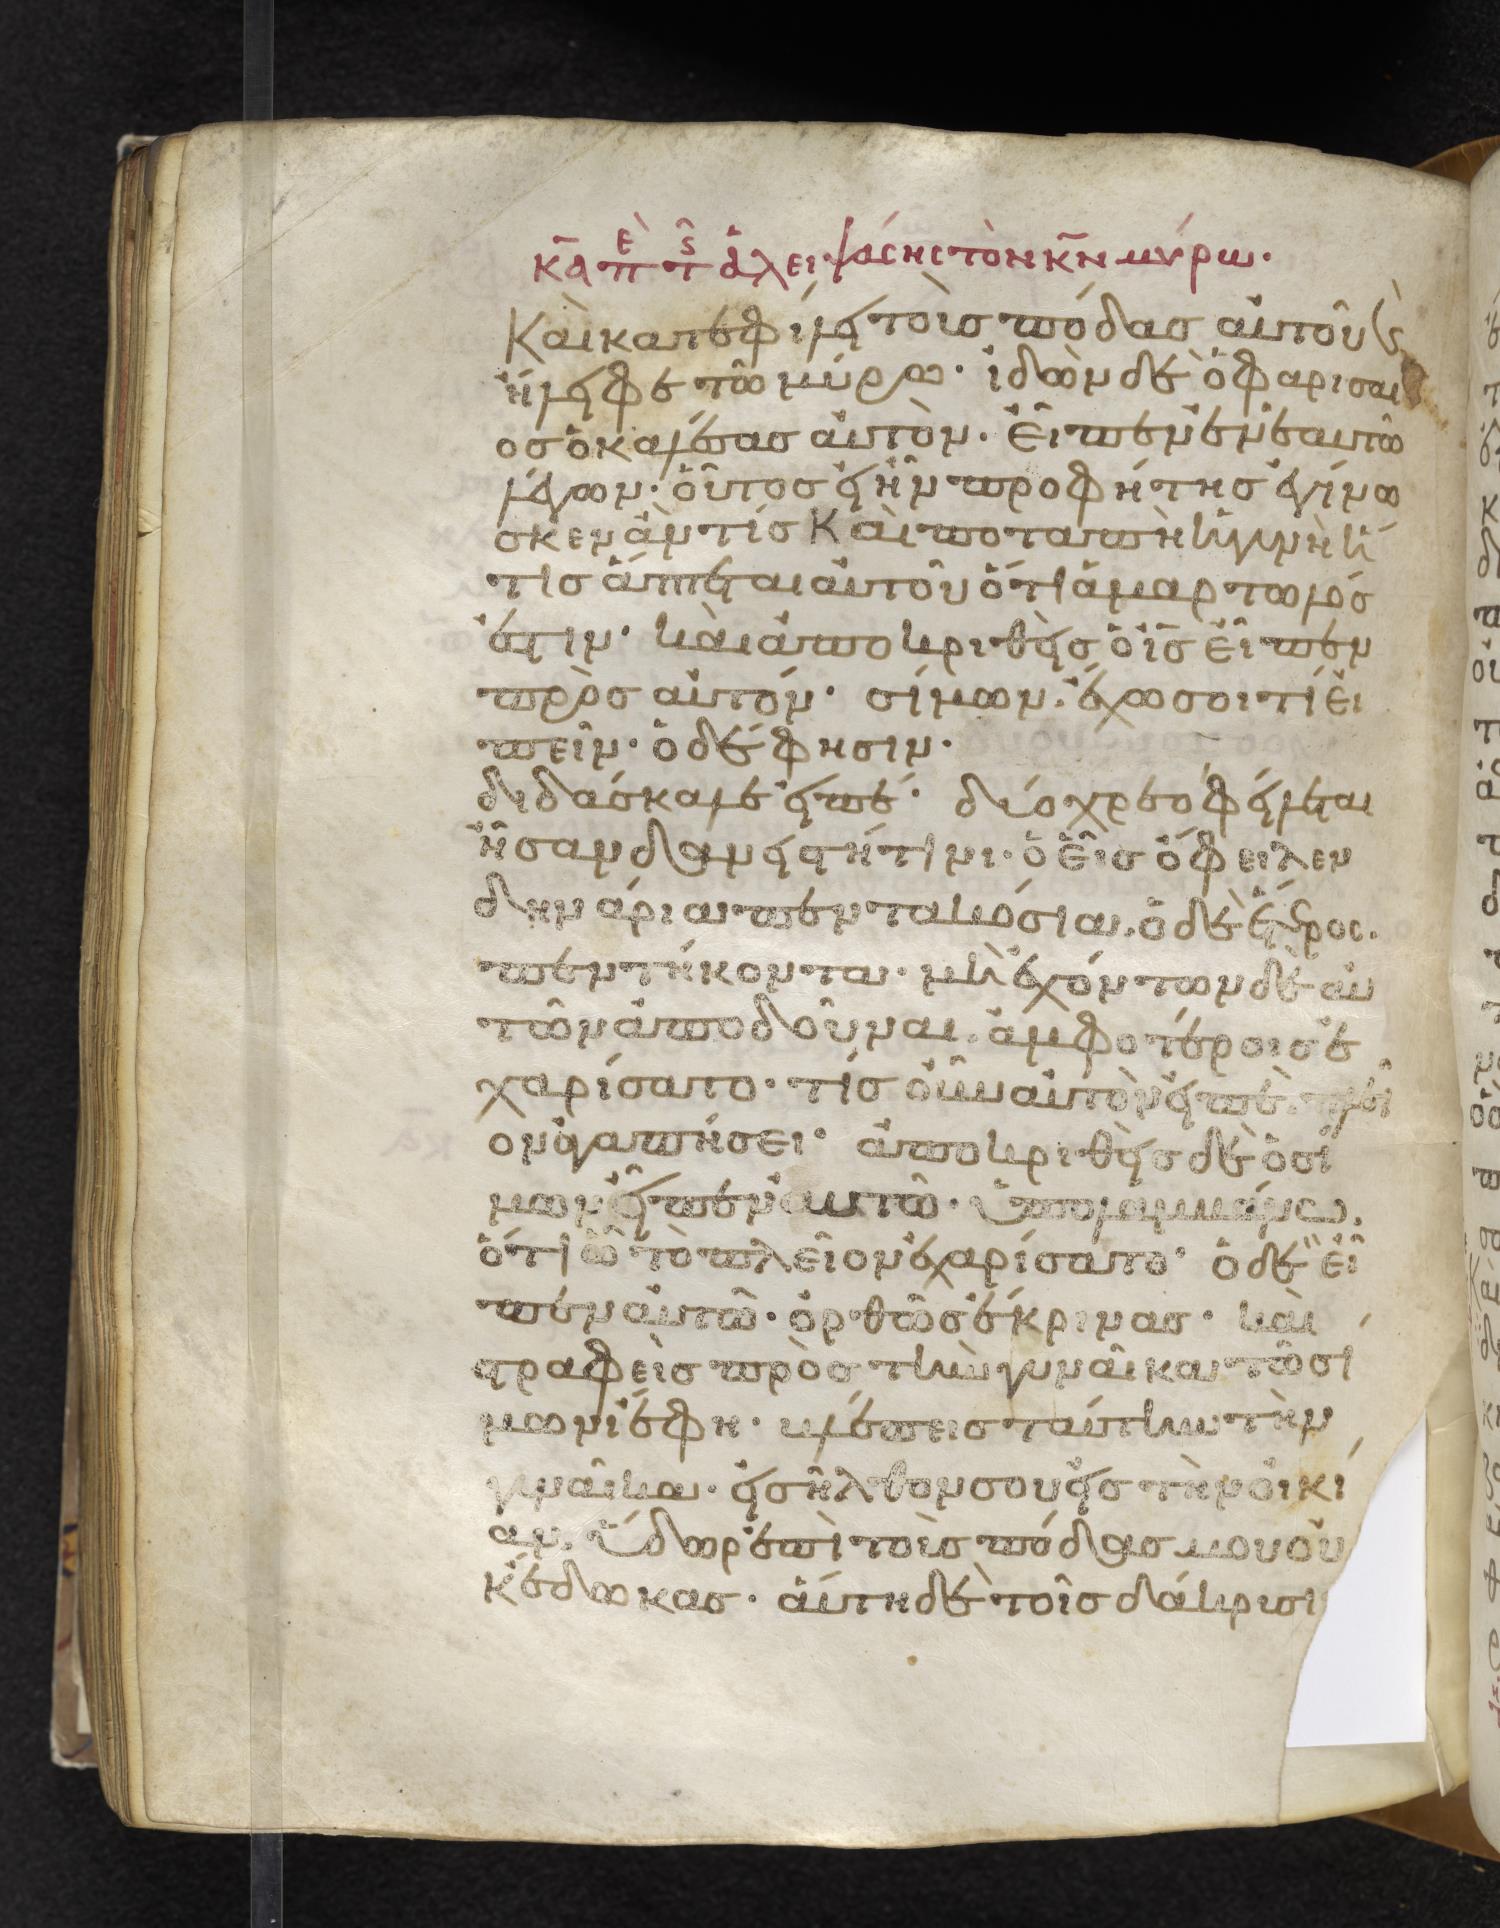 κα περὶ τῆς ἀλειψάσης τὸν κν μύρω·
Καὶ κατεφίλει τοὺς πόδας αὐτοῦ καὶ
ἤλειφε τῶ μύρω· ἰδὼν δὲ ὁ φαρισαι
οσ ὁ καλέσας αὐτὸν· εἶπεν ἐν ἑαυτῶ
λέγων· οὗτος εἰ ἦν προφήτης ἐγίνω
σκεν ἂν τίς Καὶ ποταπὴ ἡ γυνὴ ἥ
τις ἅπτεται αὐτοῦ ὅτι ἁμαρτωλός
ἐστιν· καὶ ἀποκριθεὶς ὁ ις εἶπεν
πρὸς αὐτόν· σίμων· ἔχω σοι τί εἰ
πεῖν· ὁ δέ φησιν·
διδάσκαλε εἰπέ· δύο χρεοφειλέται
ἦσαν δανειστῆ τινι· ὁ εἷς ὄφειλεν
δηνάρια πεντακόσια· ὁ δὲ ἕτερος·
πεντήκοντα· μὴ ἐχόντων δὲ αὐ
τῶν ἀποδοῦναι· ἀμφοτέροις ἐ
χαρίσατο· τίς οὖν αὐτὸν εἰπὲ· πλεῖ
ον ἀγαπήσει· ἀποκριθεὶς δὲ ὁ σί
μων εἶπεν αὐτῶ· ὑπολαμβάνω·
ὅτι ὧ τὸ πλεῖον ἐχαρίσατο· ὁ δὲ εἶ
πεν αὐτῶ· ὀρθῶς ἔκρινας· καὶ
στραφεὶς πρὸς τὴν γυναῖκα τῶ σί
μωνι ἔφη· βλέπεις ταύτην τὴν
γυναῖκα· εἰσῆλθον σου εἰς τὴν οἰκί
αν· ὕδωρ ἐπὶ τοὺς πόδας μου οὐ
κ ἔδωκας· αὕτη δὲ τοῖς δάκρυσι